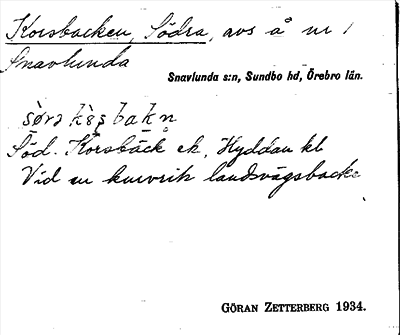 Korsbacken, Södra, avs å nr 1
Snavlunda
Snavlunda s:n, Sundbo hd, Örebro län.
sö̀rə kὸṣbakn̥
Söd. Korsbäck ek, Hyddan kl
Vid en kurvrik landsvägsbacke
GÖRAN ZETTERBERG 1934.